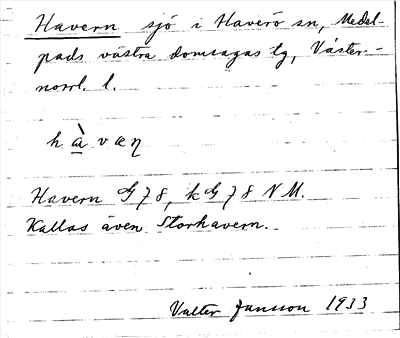 Havern sjö i Haverö sn, Medel-
pads västra domsagas tg, Väster-
norrl. l.
hàvæn
Havern G 78, kG 78 NM.
Kallas även Storhavern.
Valter Jansson 1933